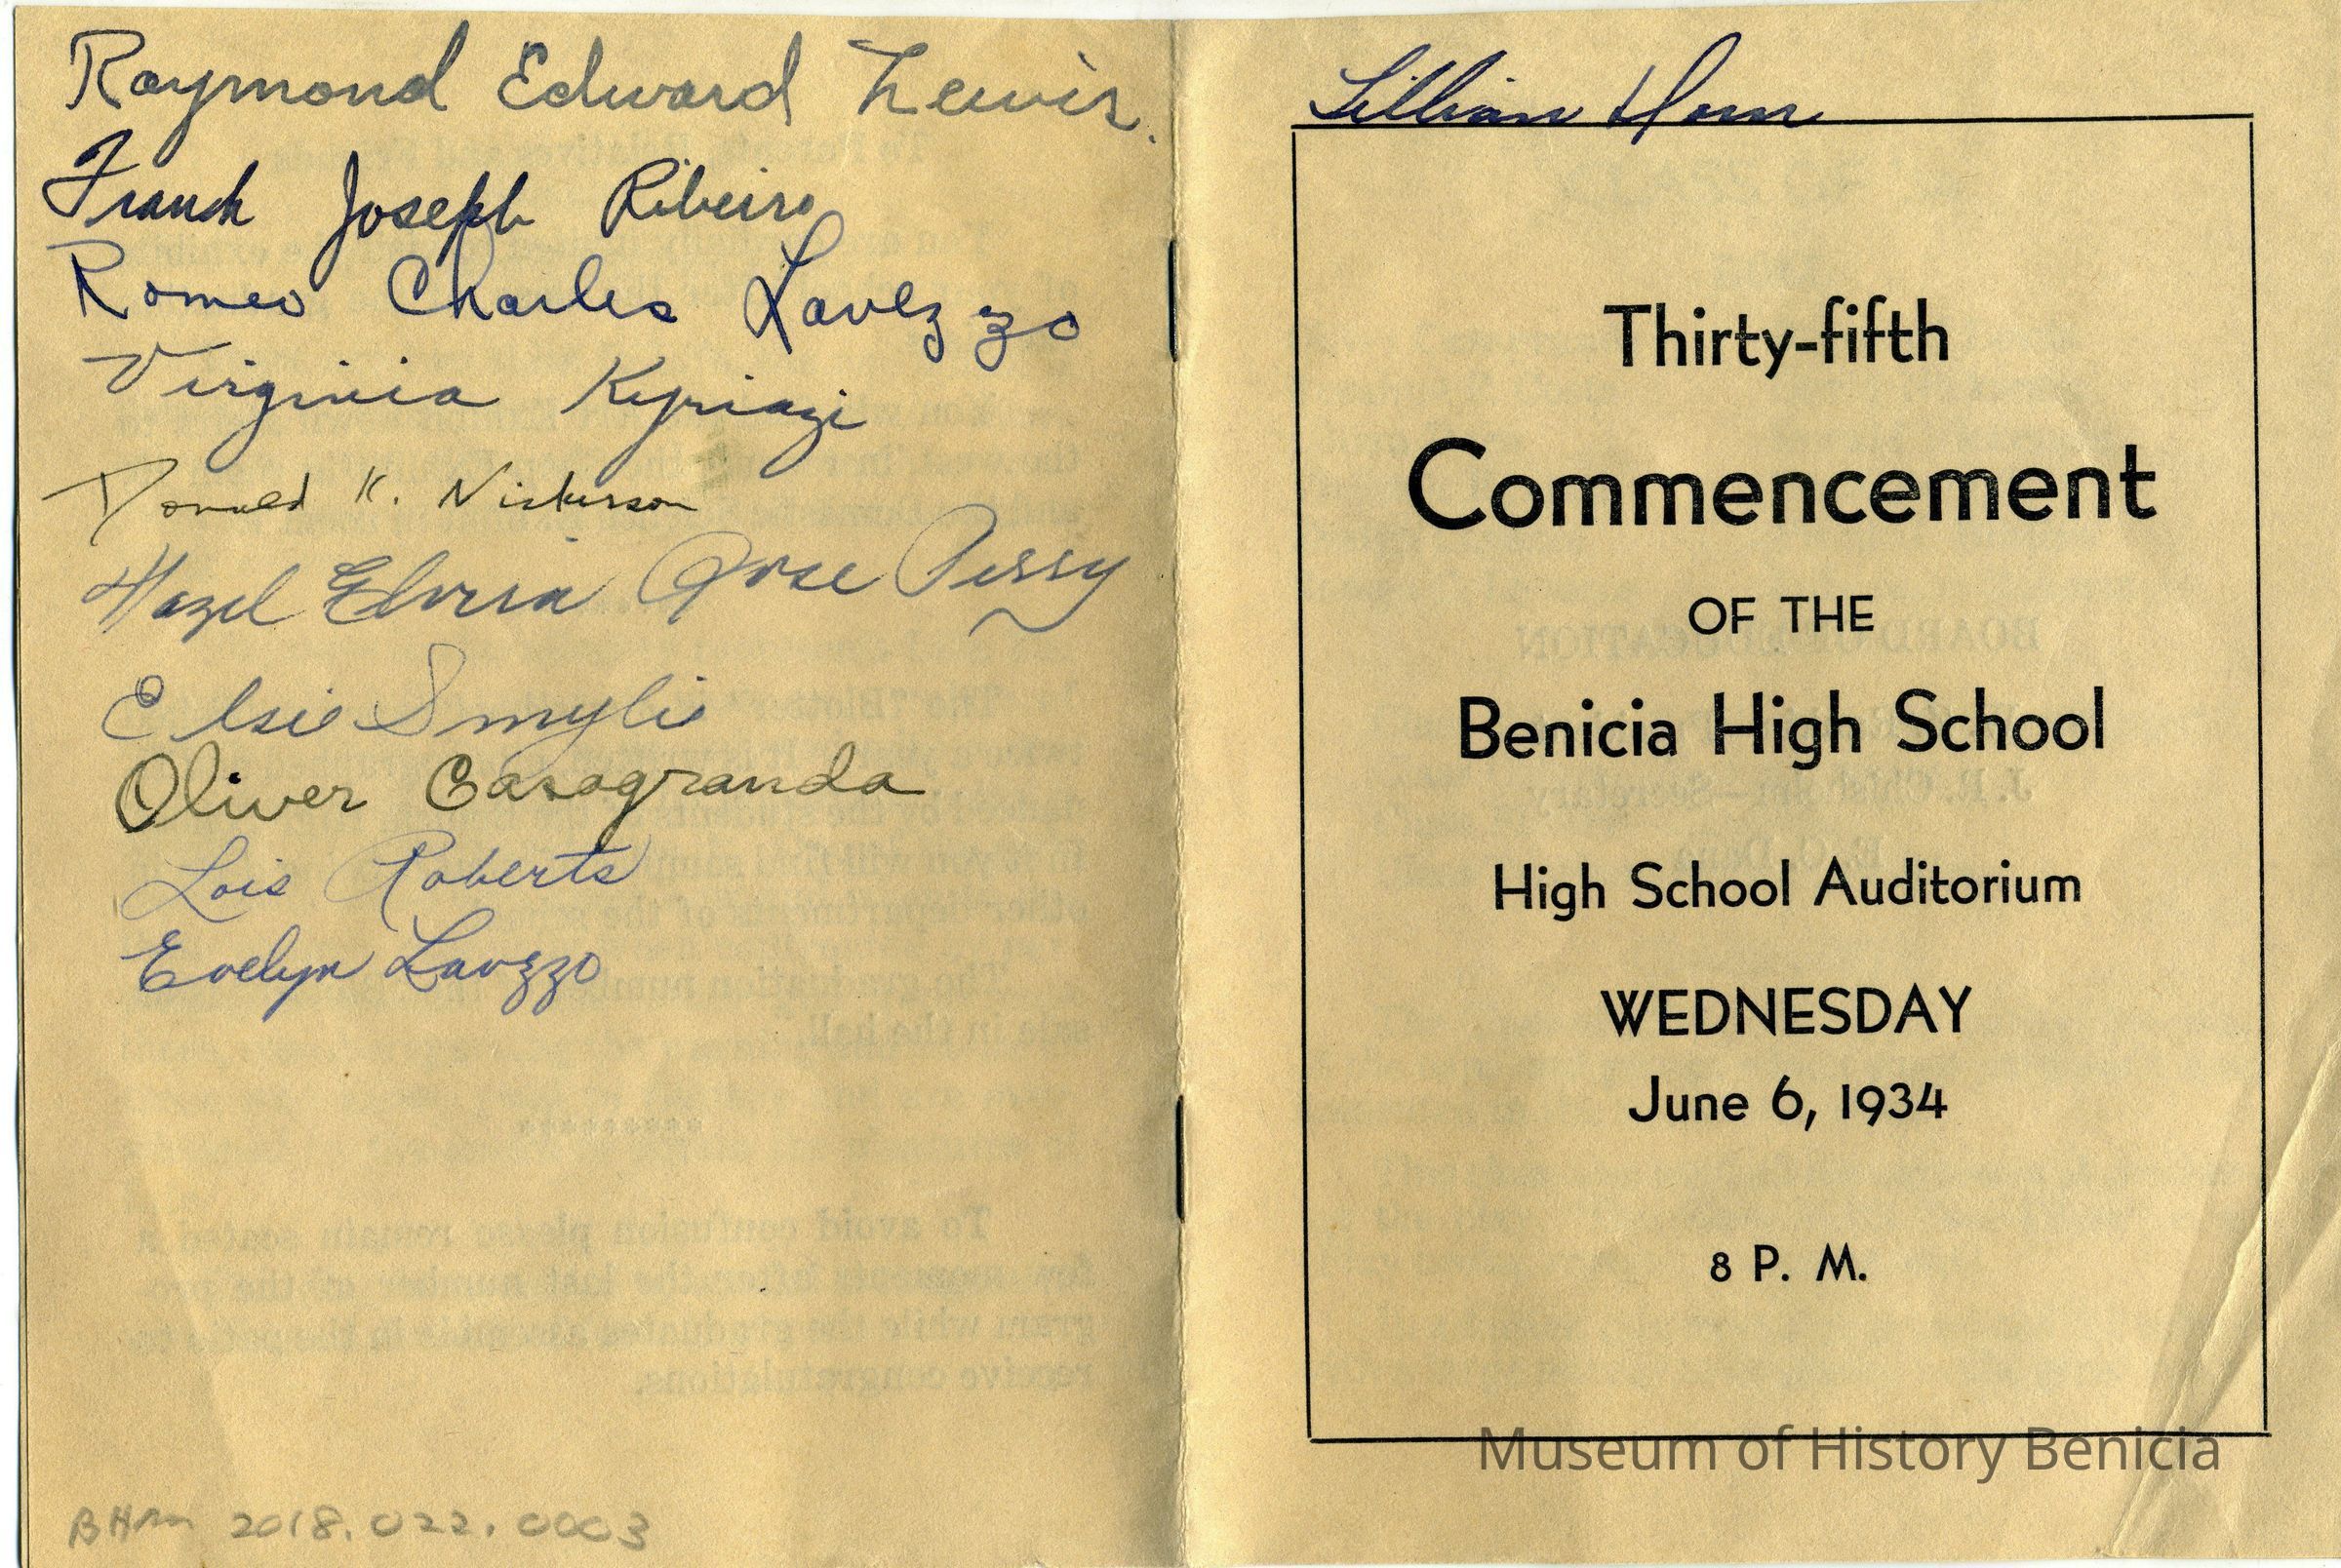 Raymond Edward Lewis.
Frank Joseph Ribeiro
Romeo Charles Lavezzo
Virginia Kyriazi
Donald K. Nickerson
Hazel Rose Perry
Elsie Smylie
Oliver Casagranda
Lois Roberts
Evelyn Lavezzo
BHM 2018.022.0003
Lillian
Thirty-fifth
Commencement
OF THE
Benicia High School
High School Auditorium
WEDNESDAY
June 6, 1934
8 P. M.
Museum of History Benicia